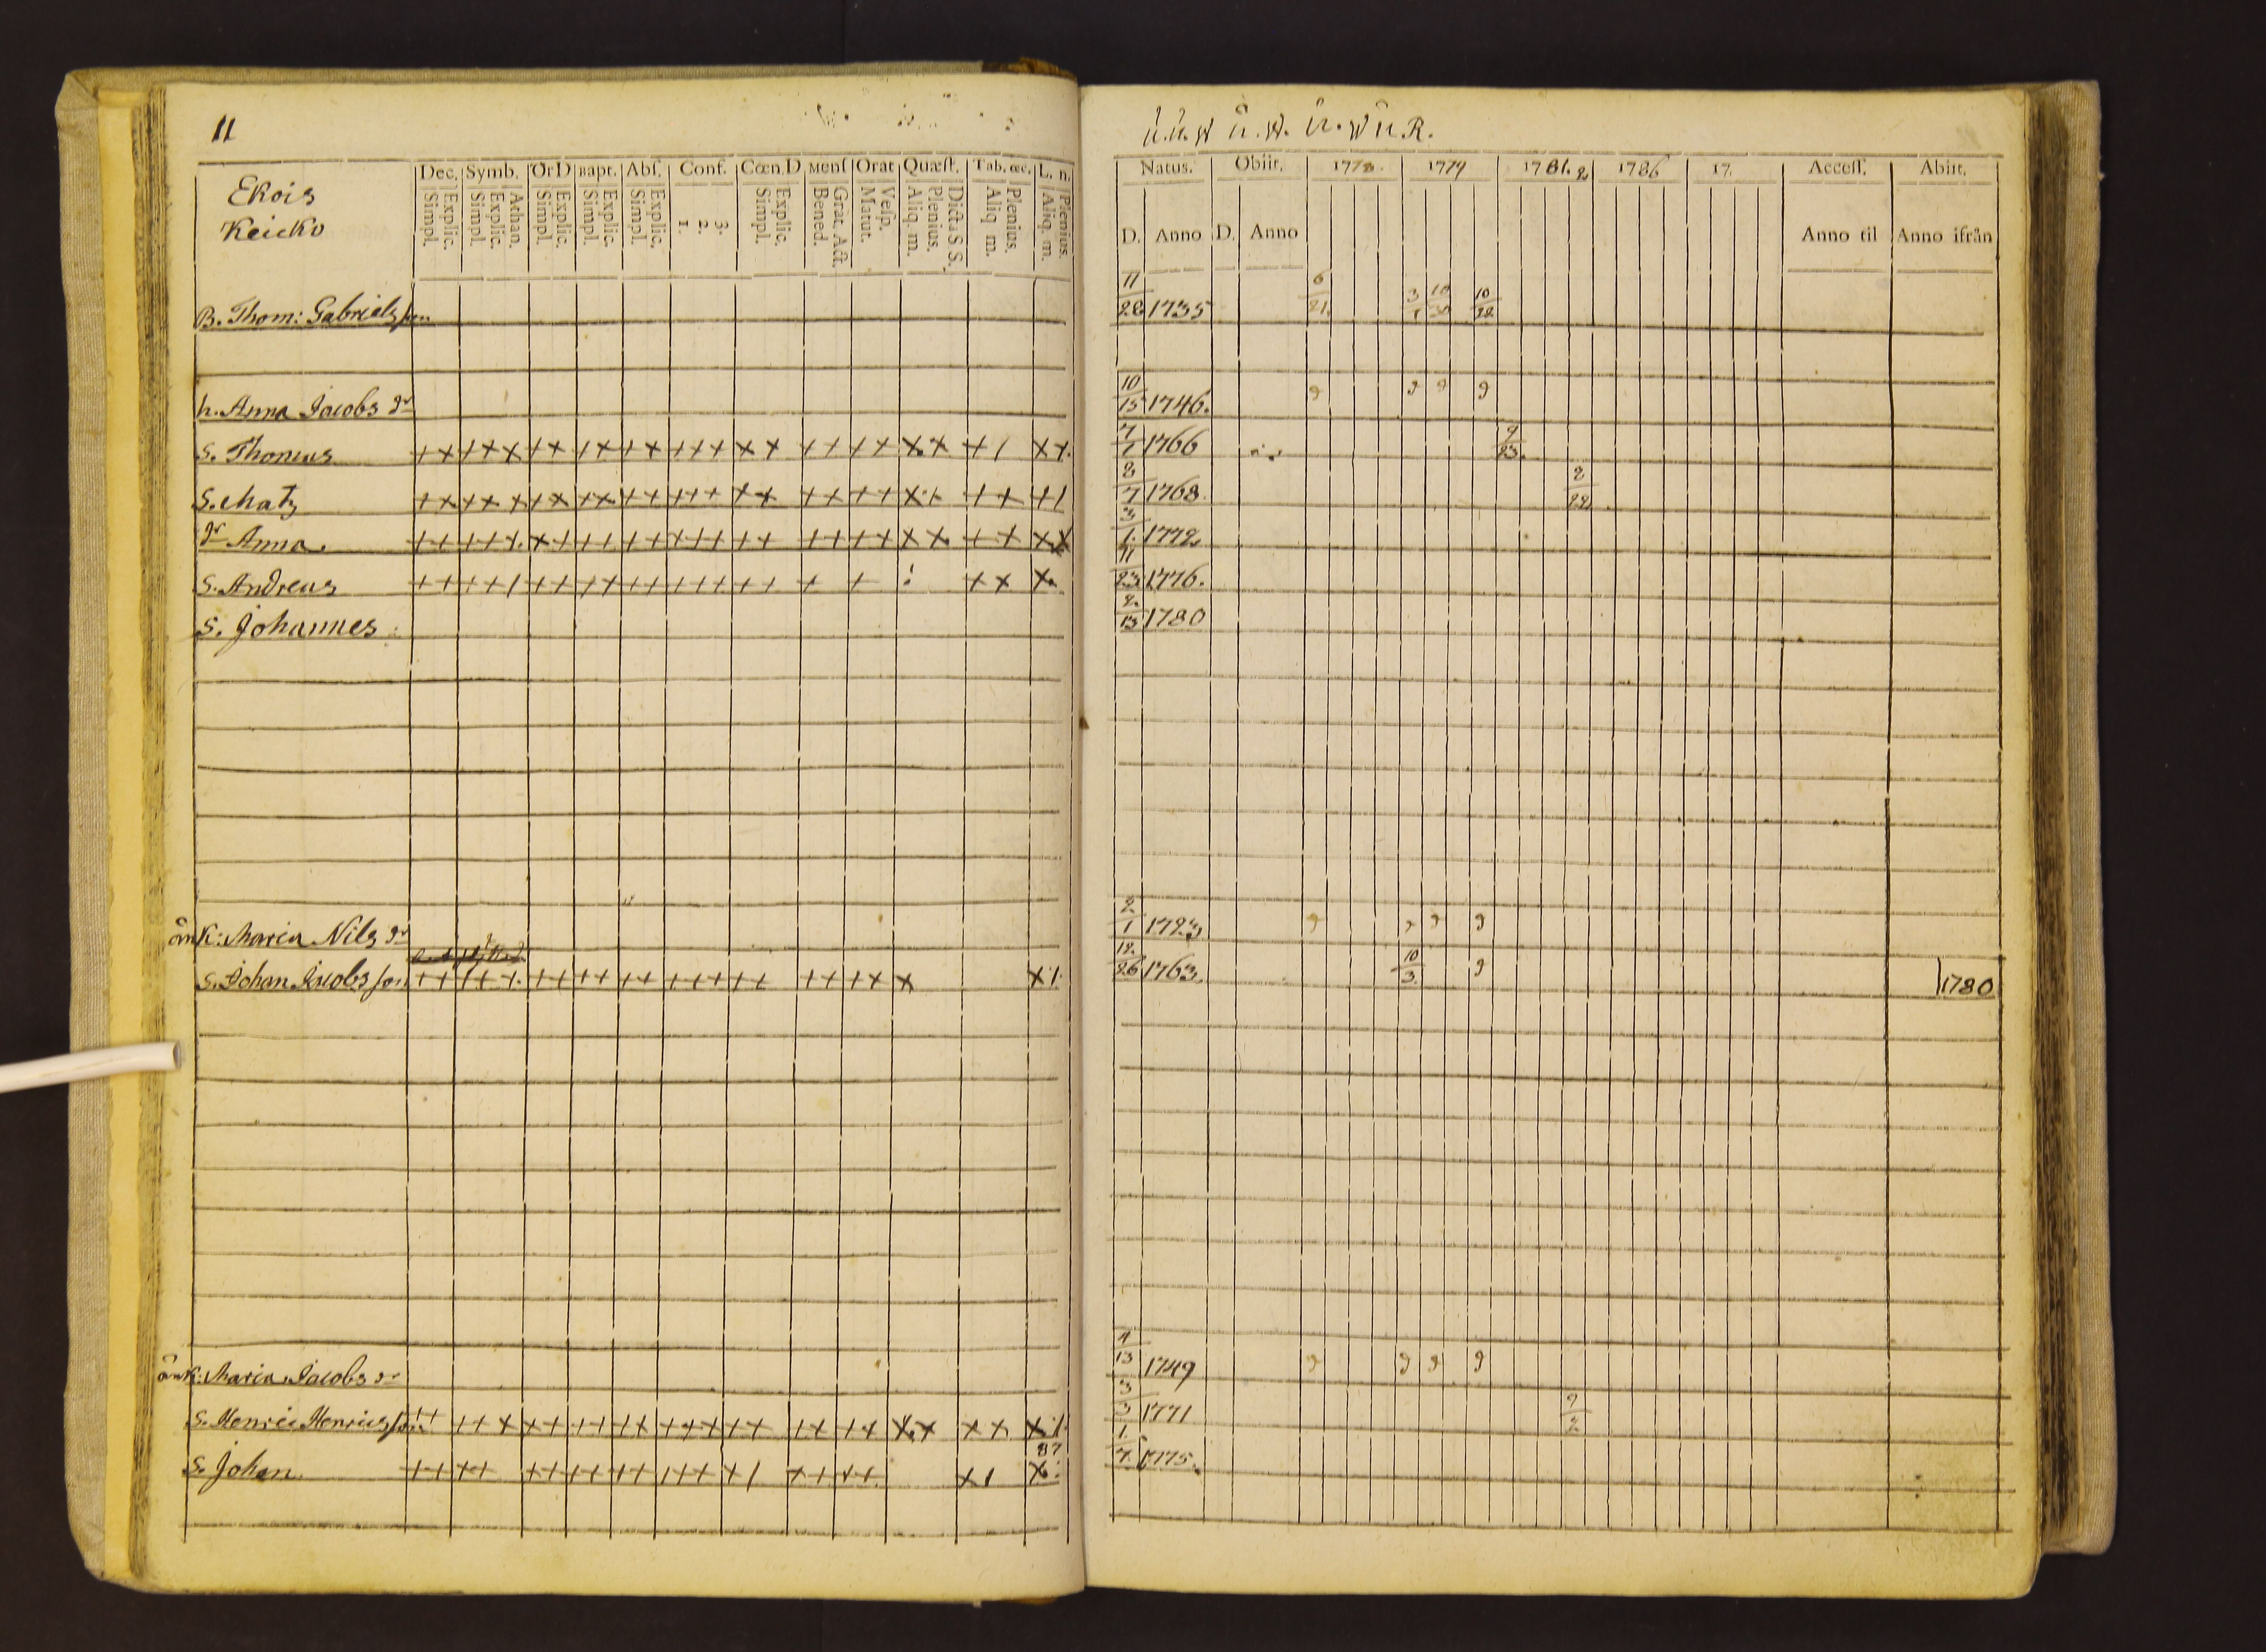 11
Dec. Symb. Or D Bapt. Abſ. Conf. Cœn. D Menſ Orat Quæſt. Tab. œc. L. n.
Simpl. Explic. Simpl. Explic. Athan. Simpl. Explic. Simpl. Explic. Simpl. Explic. 1. 2. 3. Simpl. Explic. Bened. Grat. Act. Matut. Veſp. Aliq. m. Plenius. Dict. S S. Aliq m. Plenius. Aliq. m. Plenius.
Ekois
Keicko
B. Thom: Gabrielsson
h. Anna Jacobs dr
S. Thomas
S. Matz
dr Anna
S. Andreas
S. Johannes
änk: Maria Nils dr
S. Johan Jacobsson
änk: Maria Jacobs dr
S. Henric Henricsson
87
S. Johan
Natus. Obiit. 1778. 1779 1781. 2 1786 17. Acceſſ. Abiit.
D. Anno D. Anno Anno til Anno ifrån
11/28 1735 6/21. 10/22
10/15 1746.
7/1 1766 23.
8/7 1768 2/22
3/1 1772
11/23 1776.
2/13 1780
2/1 1723
12/26 1763. 10/3 1780
4/13 1749
3/3 1771 9/2
1/7 1775.